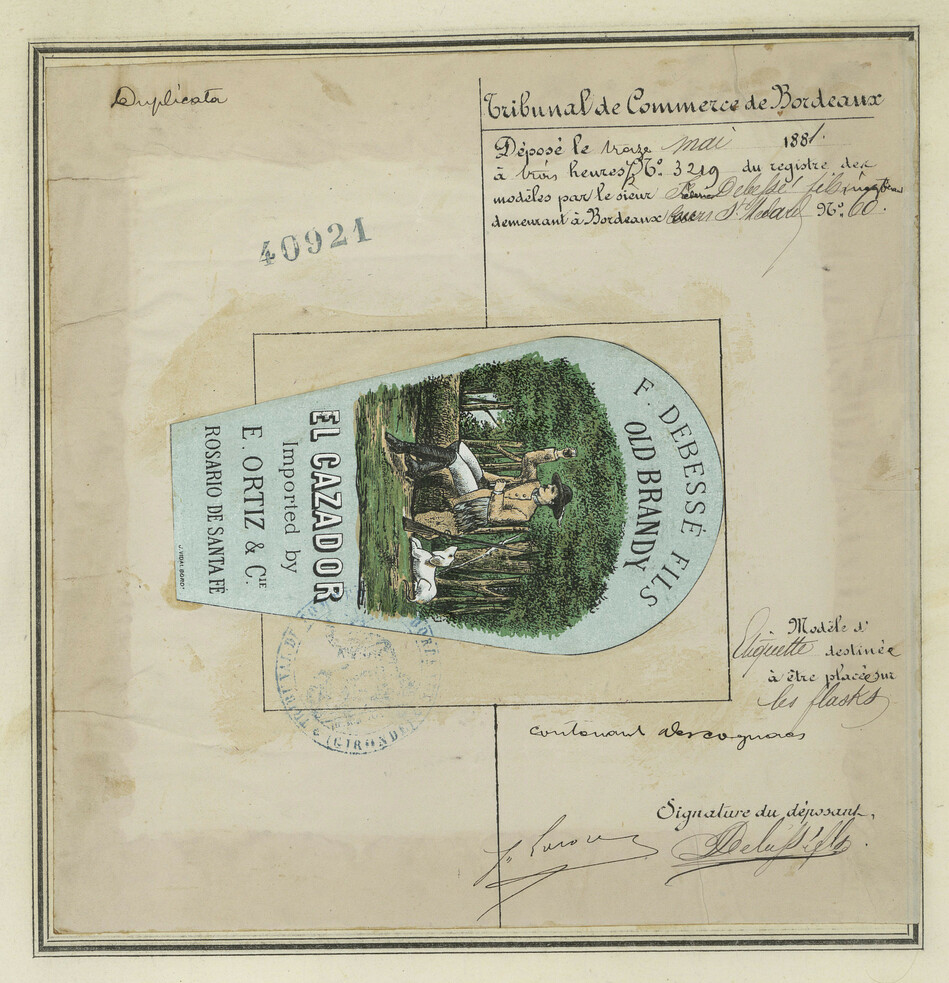 Duplicata
Tribunal de Commerce de Bordeaux
Déposé le treize mai 1881.
à trois heures 1/2 No. 3219 du registre des
modèles par le sieur Debessé fils
demeurant à Bordeaux Cours St. Médard No. 60.
40921
F. DEBESSÉ FILS
OLD BRANDY
EL CAZADOR
Imported by
E. ORTIZ & CIE
ROSARIO DE SANTA FÈ
J. VIDAL BORDX.
Modèle d'
Etiquette destinée
à être placée sur
les flasks
contenant des cognacs
TRIBUNAL DE
GIRONDE
Signature du déposant,
Debessé fils